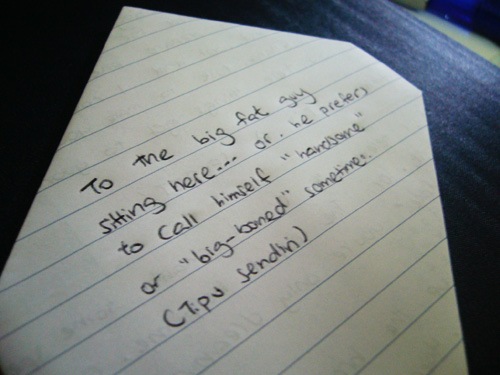 To the big fat guy
sitting here... or. he prefers
to call himself "handsome"
or "big-boned" sometime.
(Tipu sendiri)